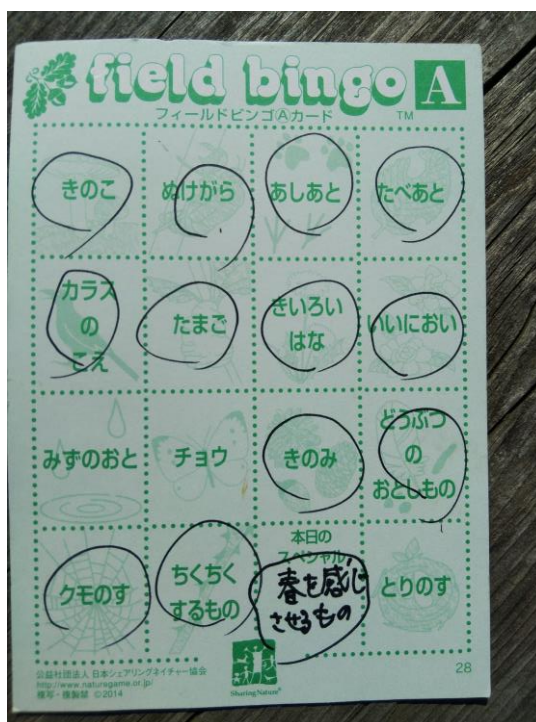 field bingo A
フィールドビンゴⒶカード
TM
きのこ
ぬけがら
あしあと
たべあと
カラス
の
こえ
たまご
きいろい
はな
いいにおい
みずのおと
チョウ
きのみ
どうぶつ
の
おとしもの
クモのす
ちくちく
するもの
本日の
スペシャル
春を感じ
させるもの
とりのす
公益社団法人 日本シェアリングネイチャー協会
http://www.naturegame.or.jp/
複写・複製禁 ©2014
Sharing Nature®
28